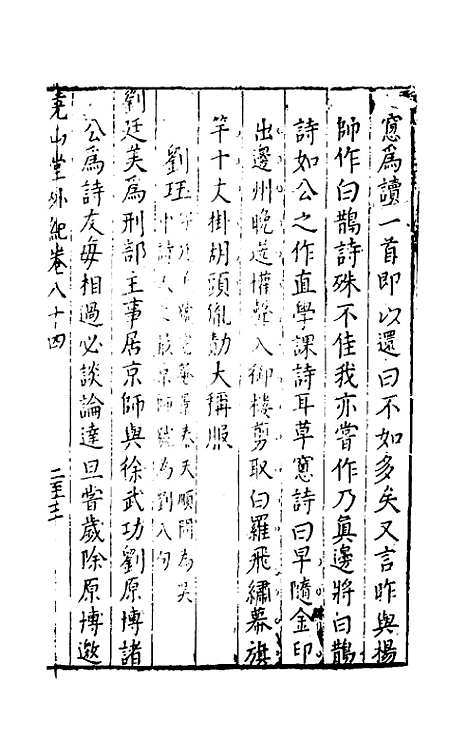 窻為讀一首即以還曰不如多矣又言昨與楊
師作白鵲詩殊不佳我亦嘗作乃真邊將白鵲
詩如公之作直學課詩耳草窻詩曰早隨金印
出邊州晚送懽聲入御樓剪取白羅飛繡幕旗
竿十丈掛胡頭胤勣大稱服
劉珏
天順間為吳
中詩人之 京師 為劉八句
劉廷美為刑部主事居京師與徐武功劉原博諸
公為詩友每相過必談論達旦嘗歲除原博邀
堯山堂外紀卷八十四